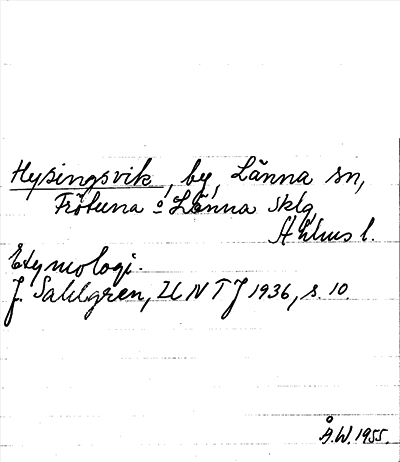 Hysingsvik, by, Länna sn,
Frötuna o Länna sklg,
Sthlms l.
Etymologi.
J. Sahlgren, UNTJ 1936, s. 10.
Å.W. 1955.